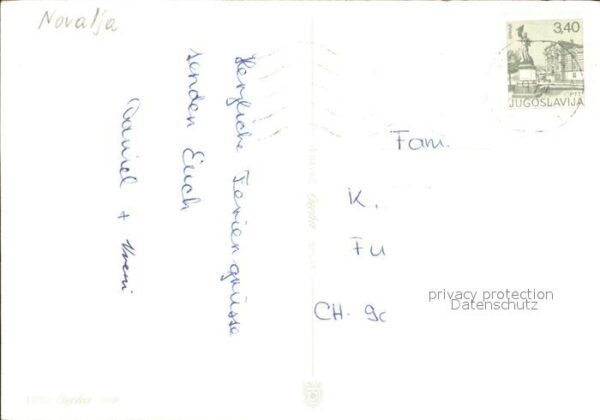 Novalja
3,40
JUGOSLAVIJA
Herzliche Feriengrüsse
senden Euch
Daniel + Vreni
Fam.
K.
Fu
CH. 9c
privacy protection
Datenschutz
FOTO